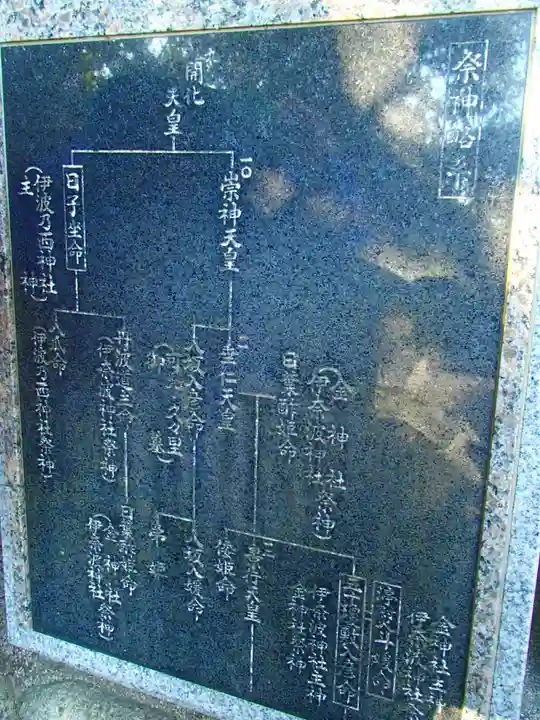 祭神略系
九
開化
天皇
一〇
崇神天皇
日子坐命
(伊波乃西神社
主神)
一一
垂仁天皇
日葉酢姫命
(金神社
伊奈波神社祭神)
八坂入彦命
丹波道主命
(伊奈波神社祭神)
八瓜命
(伊波乃西神社祭神)
渟熨斗媛命
金神社主神
伊奈波神社
五十瓊敷入彦命
伊奈波神社主神
金神社祭神
一二
景行天皇
倭姫命
八坂入媛命
弟姫
日葉酢姫命
(金神社
伊奈波神社祭神)